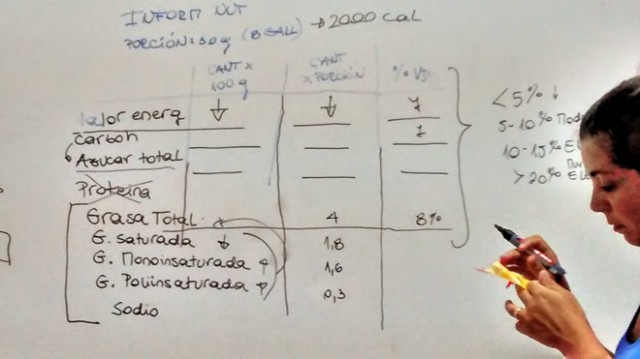 INFORM NUT
PORCIÓN: 30g (8 GALL) → 2000 cal
CANT x 100 g
CANT x PORCIÓN
% VD
Valor energ ↓ ↓ 7
Carboh 7
Azucar total
Proteina
Grasa Total 4 8%
G. saturada ↓ 1,8
G. Monoinsaturada ↑ 1,6
G. Poliinsaturada ↑ 0,3
Sodio
<5% ↓
5-10%
10-15%
>20%